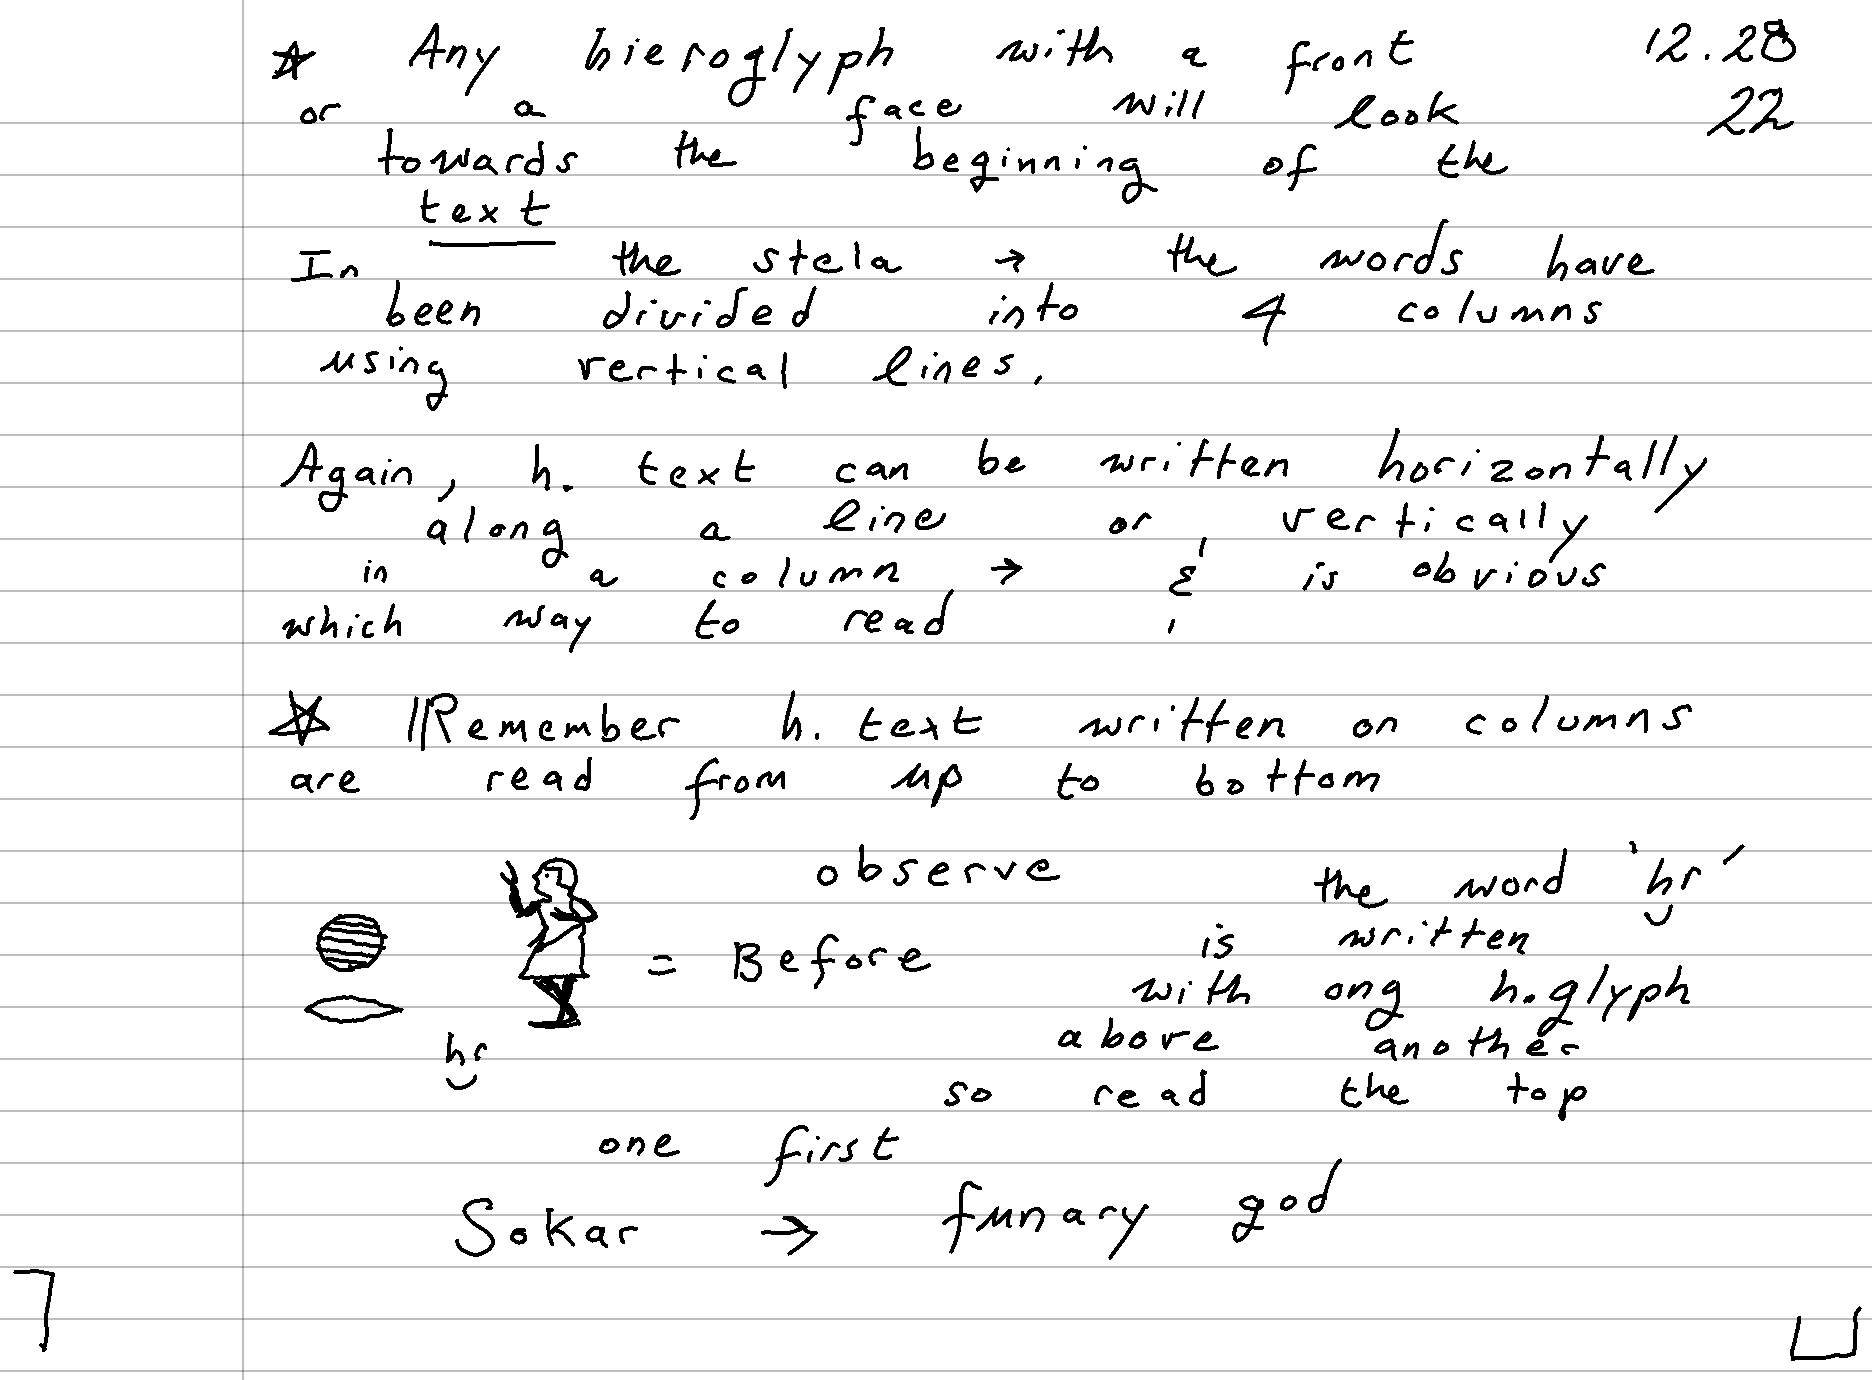 ☆ Any hieroglyph with a front 12.28
or a face will look 22
towards the beginning of the
text
In the stela → the words have
been divided into 4 columns
using vertical lines.
Again, h. text can be written horizontally
along a line or vertically
in a column → & is obvious
which way to read
☆ Remember h. text written on columns
are read from up to bottom
observe the word 'hr'
= Before is written
with ong h.glyph
hr above another
so read the top
one first
Sokar → funary god